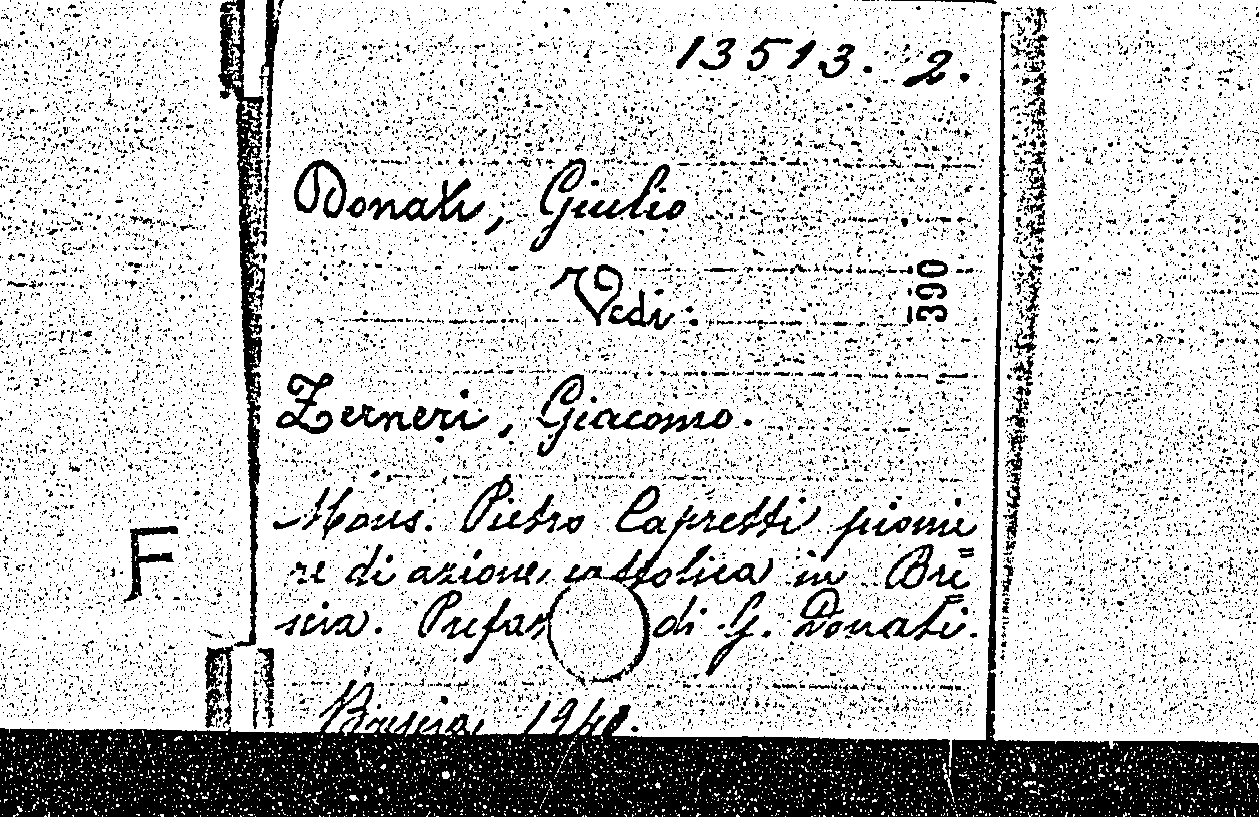 13513. 2.
Donati, Giulio
Vedi:
390
Zerneri, Giacomo.
Mons. Pietro Capretti pionie
re di azione cattolica in Bre=
F
scia. Prefaz di G. Donati.
Brescia, 1940.